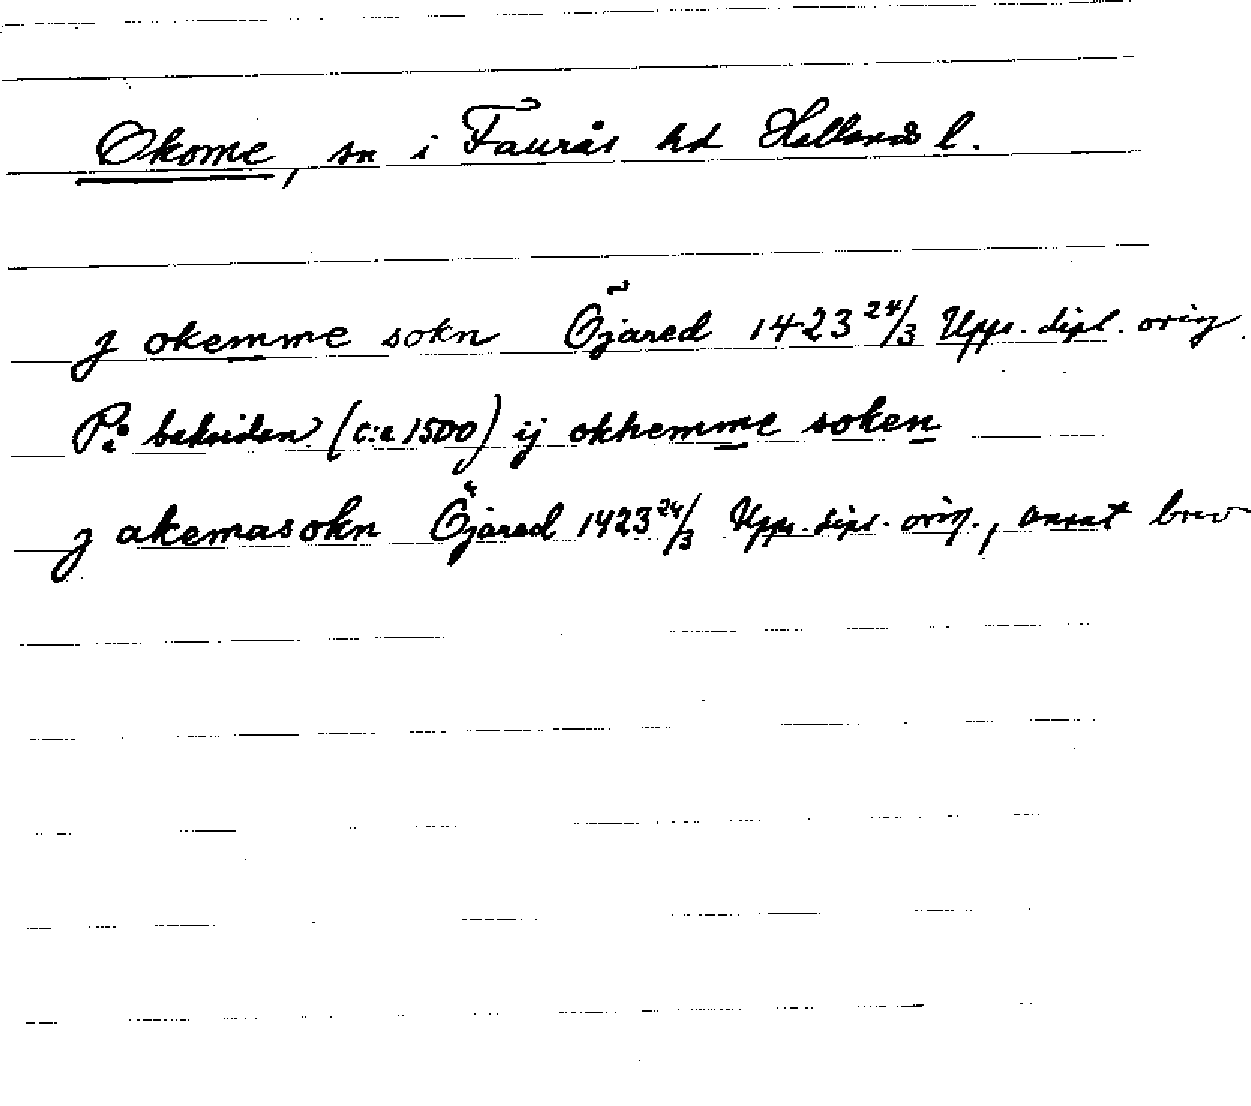 Okome, sn i Faurås hd Hallands l.
J okemme sokn Öjared 1423 24/3 Upps. dipl. orig.
På baksidan (c:a 1500) ij okhemme soken
J akemasokn Öjared 1423 24/3 Upps. dipl. orig., annat brev